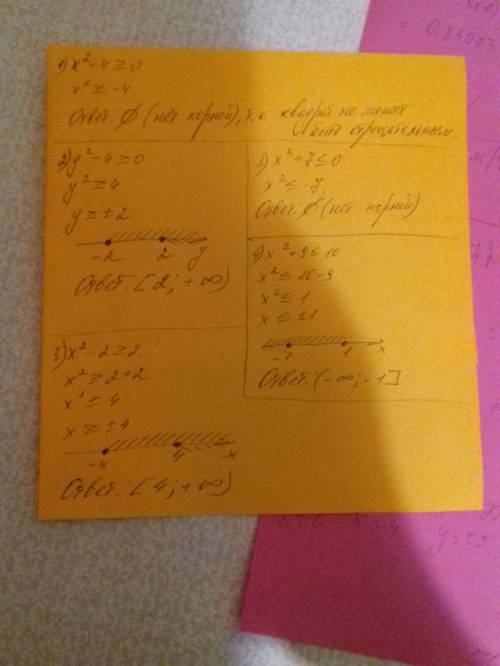 1) x² + 4 ≥ 0
x² ≥ -4
Ответ: ∅ (нет корней), т.к квадрат не может
быт отрицательным.
2) y² - 4 ≥ 0
y² ≥ 4
y ≥ ± 2
-2 2 y
Ответ: [2; +∞)
3) x² + 7 ≤ 0
x² ≤ -7
Ответ: ∅ (нет корней)
4) x² + 9 ≤ 10
x² ≤ 10-9
x² ≤ 1
x ≤ ±1
-1 1 x
Ответ: (-∞; -1]
5) x² - 2 ≥ 2
x² ≥ 2+2
x² ≤ 4
x ≥ ± 4
-4 4 x
Ответ: [4; +∞)